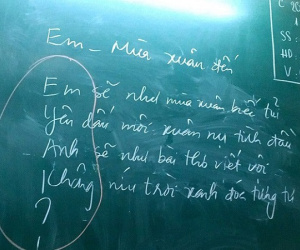 Em - Mùa xuân đến
Em sẽ như mùa xuân biết
Yên dấu môi xuân nụ tình đầu
- Anh sẽ như bài thơ viết vội
Không níu trời xanh đốt từng
?
C
SS:
HD
V: